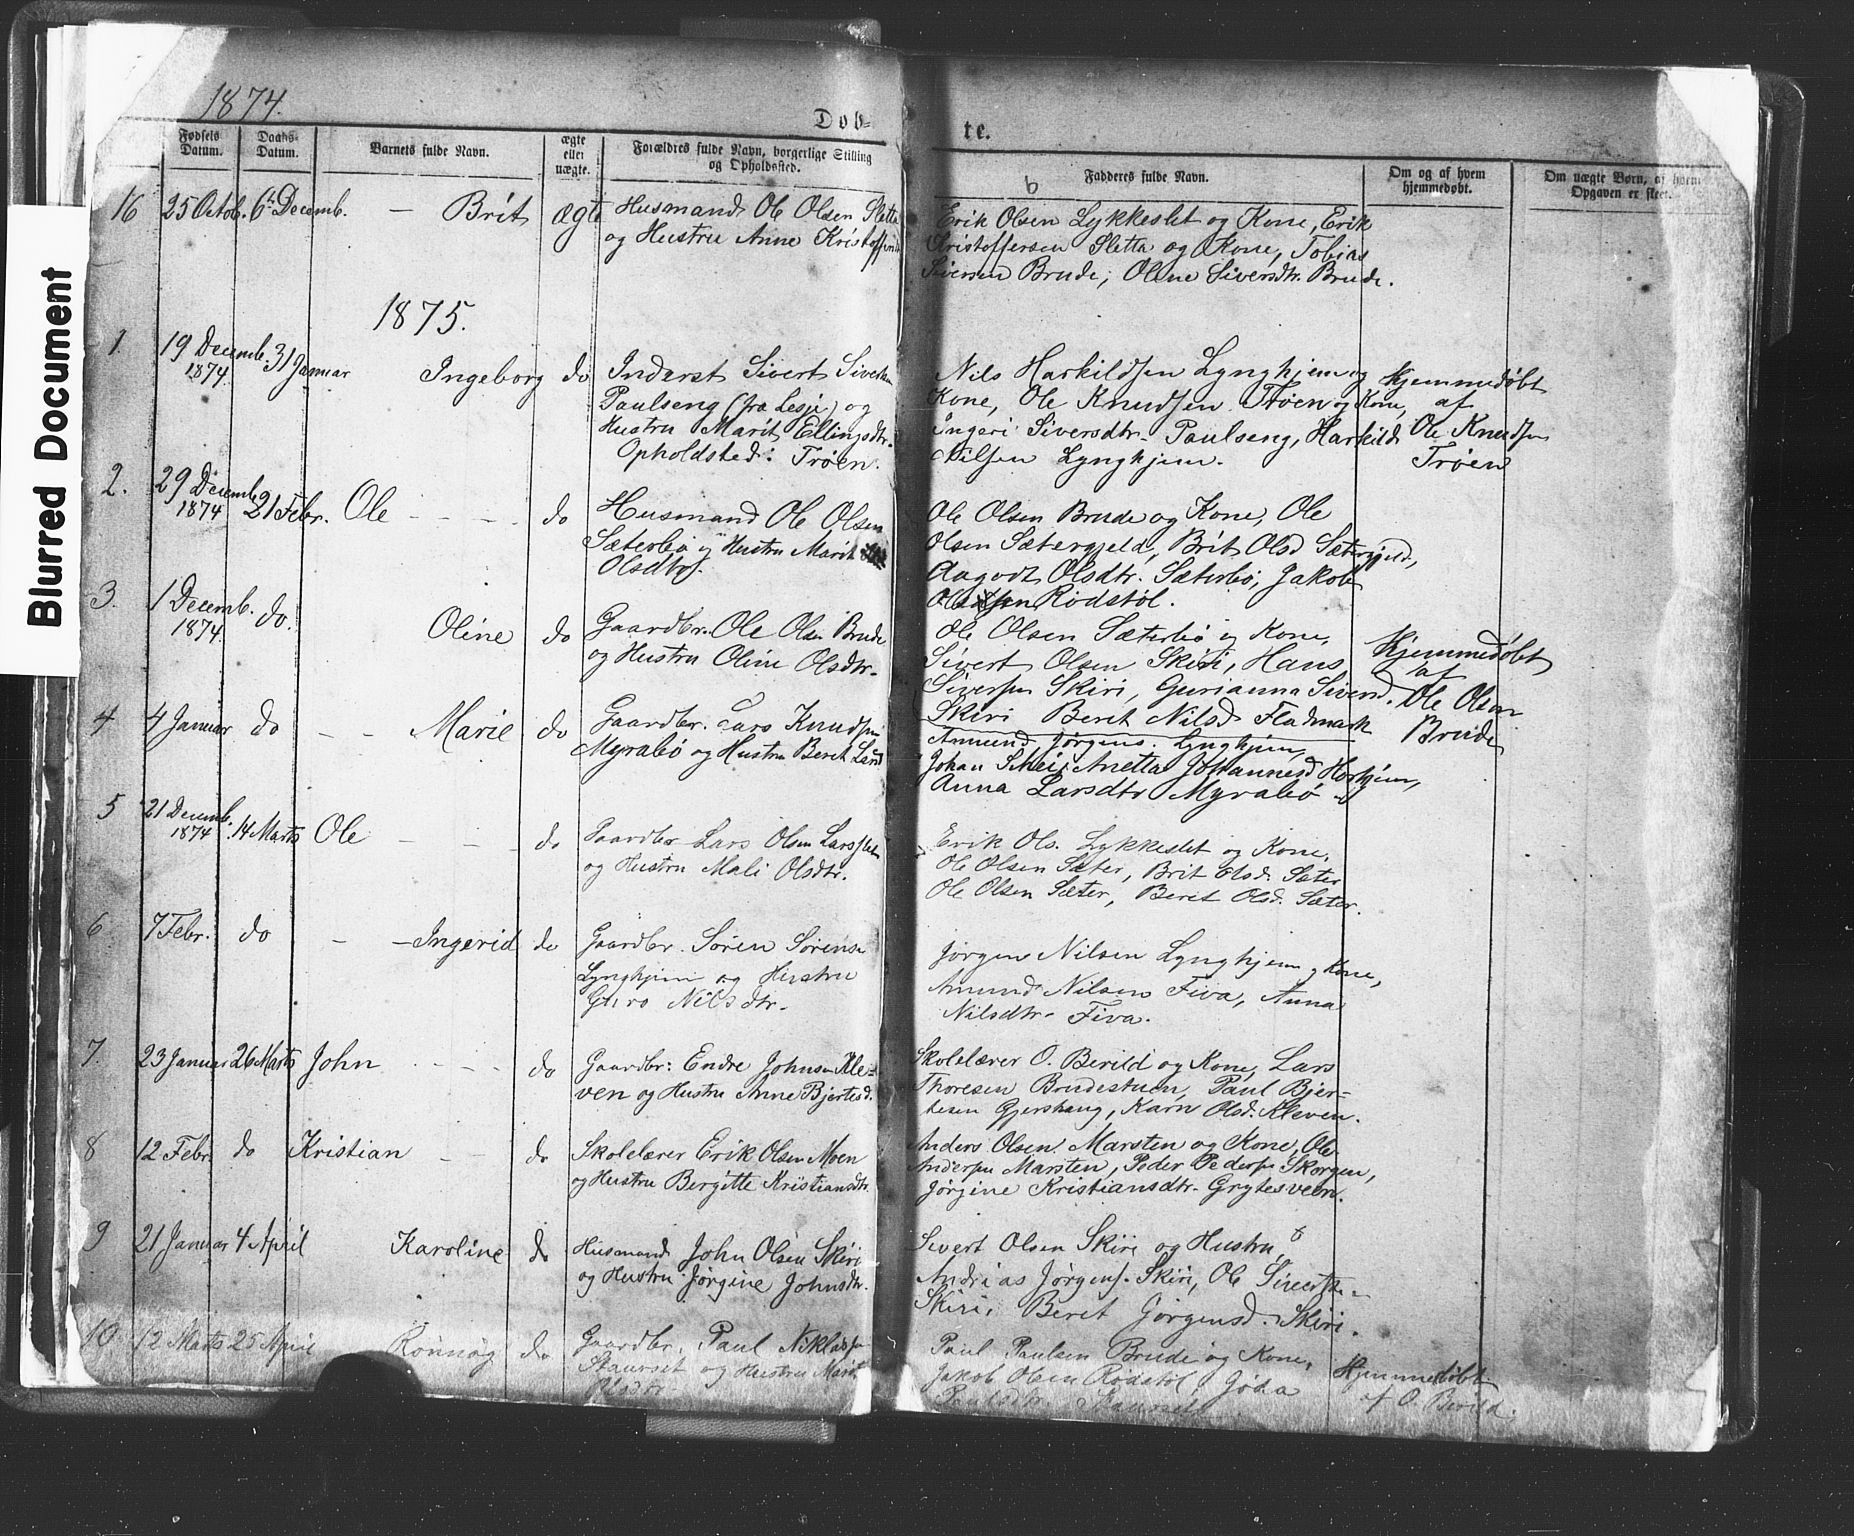 Blurred Document
1874.
Døb-
te.
Fødsels Datum.
Daabs-Datum.
Barnets fulde Navn.
ægte eller uægte.
Forældres fulde Navn, borgerlige Stilling og Opholdssted.
Fadderes fulde Navn.
Om og af hvem hjemmedøbt.
Om uægte Børn, af hvem Opgaven er skeet.
16 25 Octob. 6te Decemb. – Brit ægte
Husmand Ole Olsen Sletta
og Hustru Anne Kristoffersd.
Erik Olsen Lykkeslet og Kone, Erik
Kristoffersen Sletta og Kone, Tobias
Siversen Brude, Oline Siversdtr. Brude.
1875.
1. 19 Decemb. 1874 31 Januar Ingeborg do
Inderst Sivert Siversen
Paulseng (fra Lesje) og
Hustru Marit Ellingsdtr.
Opholdsted: Trøen.
Nils Harkildsen Lynghjem og
Kone, Ole Knudsen Trøen og Kone,
Ingeri Siversdtr. Paulseng, Harkild
Nilsen Lynghjem.
Hjemmedøbt
af
Ole Knudsen
Trøen
2. 29 Decemb. 1874 21 Febr. Ole – – – do
Husmand Ole Olsen
Sæterbø og Hustru Marit
Olsdtr.
Ole Olsen Brude og Kone, Ole
Olsen Sætergjeld, Brit Olsd Sætergjeld,
Aagodt Olsdtr. Sæterbø, Jakob
Olsen Rødstøl.
3. 1 Decemb. 1874 do. Oline do
Gaardbr. Ole Olsen Brude
og Hustru Oline Olsdtr.
Ole Olsen Sæterbø og Kone,
Sivert Olsen Skiri, Hans
Siversen Skiri, Gurianna Siversd.
Skiri Beret Nilsd Fladmark
Hjemmedøbt
af
Ole Olsen
Brude
4 4 Januar do – – Marie do
Gaardbr. Lars Knudsen
Myrabø og Hustru Beret Larsd
Amund Jørgens. Lynghjem,
Johan Anetta Johannesd Horhjem,
Anna Larsdtr Myrabø
5 21 Decemb. 1874 14 Marts Ole – – – do
Gaardbr Lars Olsen Larsslet
og Hustru Mali Olsdtr.
Erik Ols. Lykkeslet og Kone,
Ole Olsen Sæter, Brit Olsd. Sæter
Ole Olsen Sæter, Beret Olsd. Sæter.
6 7 Febr. do – – Ingerid do
Gaardbr. Søren Sørensen
Lynghjem og Hustru
Guro Nilsdtr.
Jørgen Nilsen Lynghjem og Kone,
Amund Nilsen Fiva, Anna
Nilsdtr. Fiva.
7. 23 Januar 26 Marts John – – – do
Gaardbr: Endre Johnsen Kle-
ven og Hustru Anne Bjertesd.
Skolelærer O. Berild og Kone, Lars
Thoresen Brudestuen, Paul Bjer-
tesen Gjershaug, Karn Olsd. Kleven.
8 12 Febr. do Kristian – – do
Skolelærer Erik Olsen Moen
og Hustru Bergitte Kristiansdtr.
Anders Olsen Marsten og Kone, Ole
Andersen Marsten, Peder Pedersen Skorgen,
Jørgine Kristiansdtr. Grytesveen.
9 21 Januar 4 April Karoline do
Husmand John Olsen Skiri
og Hustru Jørgine Johnsdtr.
Sivert Olsen Skiri og Hustru,
Andrias Jørgens. Skiri, Ole Sivertsen
Skiri, Beret Jørgensd. Skiri.
10 12 Marts 25 April Rønnog do
Gaardbr. Paul Niklassen
Staurset og Hustru Marit
Olsdtr
Paul Paulsen Brude og Kone,
Jakob Olsen Rødstøl, Gøha
Paulsdtr. Staurset
Hjemmedøbt
af O. Berild.